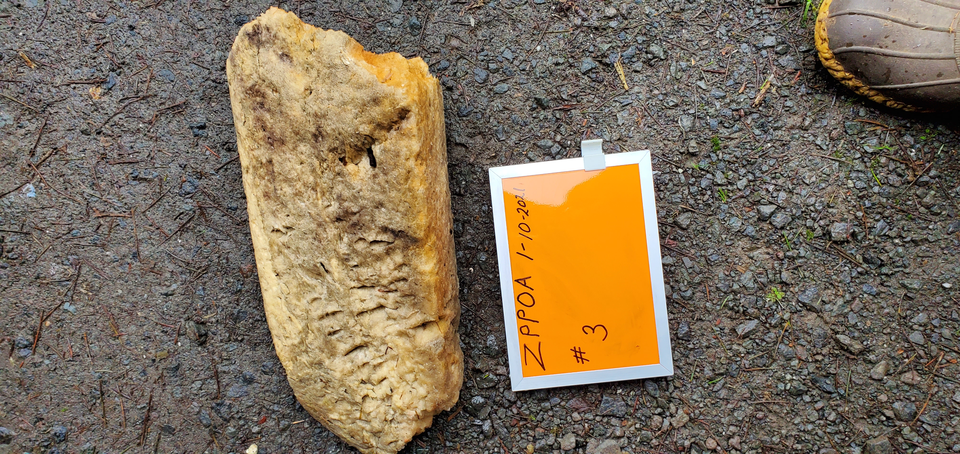 ZPPOA 1-10-2021
# 3